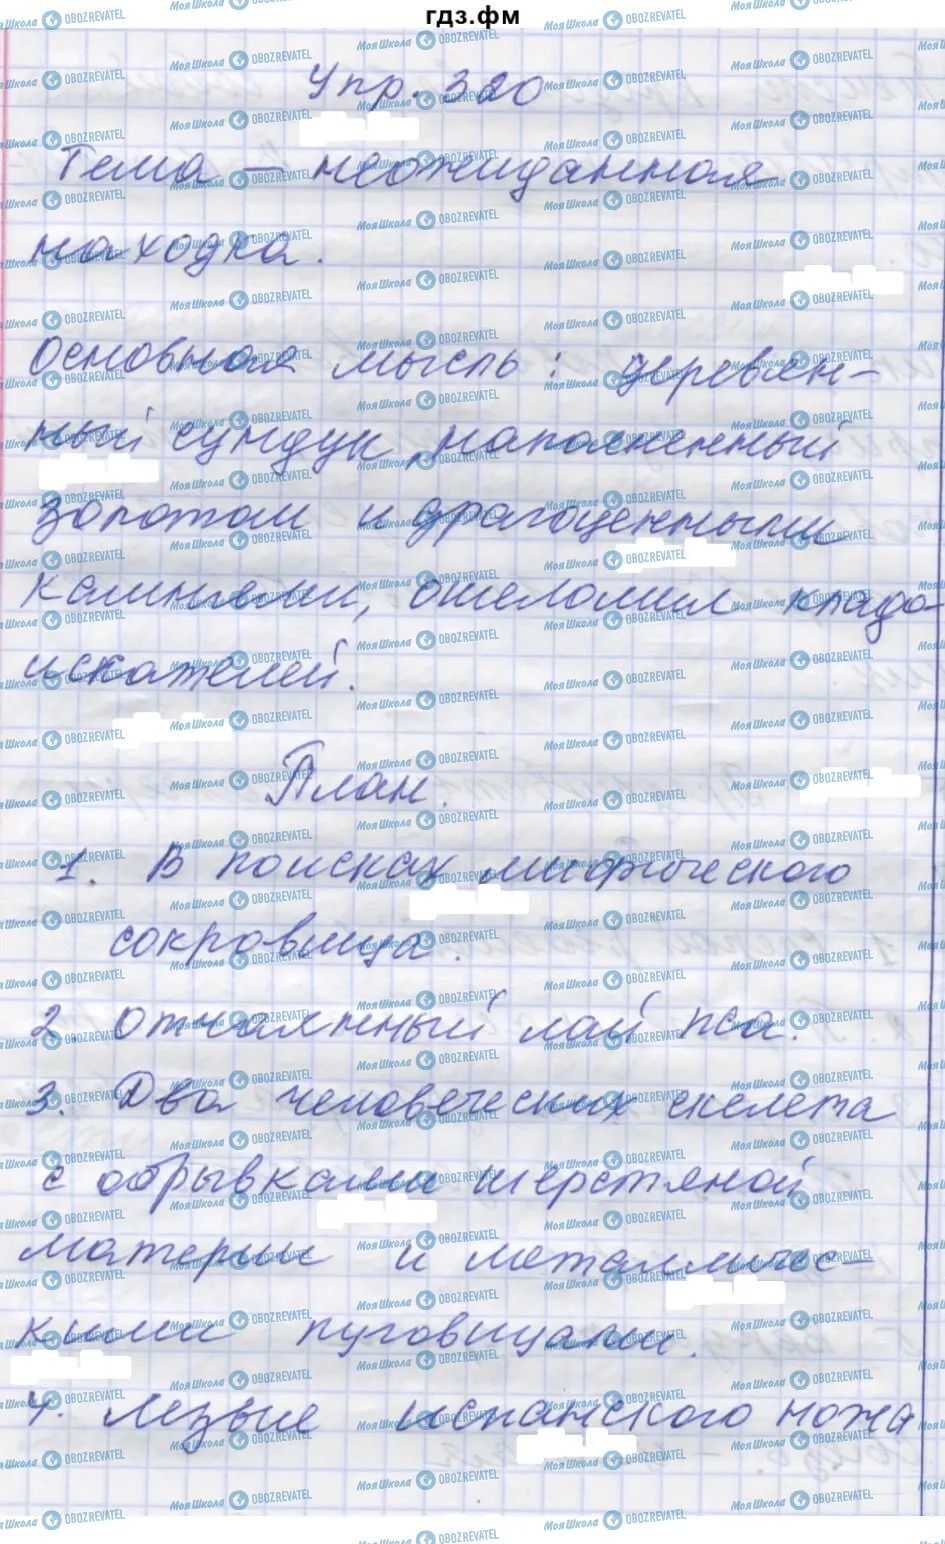 гдз.фм
Упр. 320
Тема – неожиданная
находка.
Основная мысль: деревян-
ный сундук, наполненный
золотом и драгоценными
камнями, ошеломил кладо-
искателей.
План.
1. В поисках мифического
сокровища.
2. Отчаянный лай пса.
3. Два человеческих скелета
с обрывками шерстяной
материи и металличес-
кими пуговицами.
4. Лезвие испанского ножа